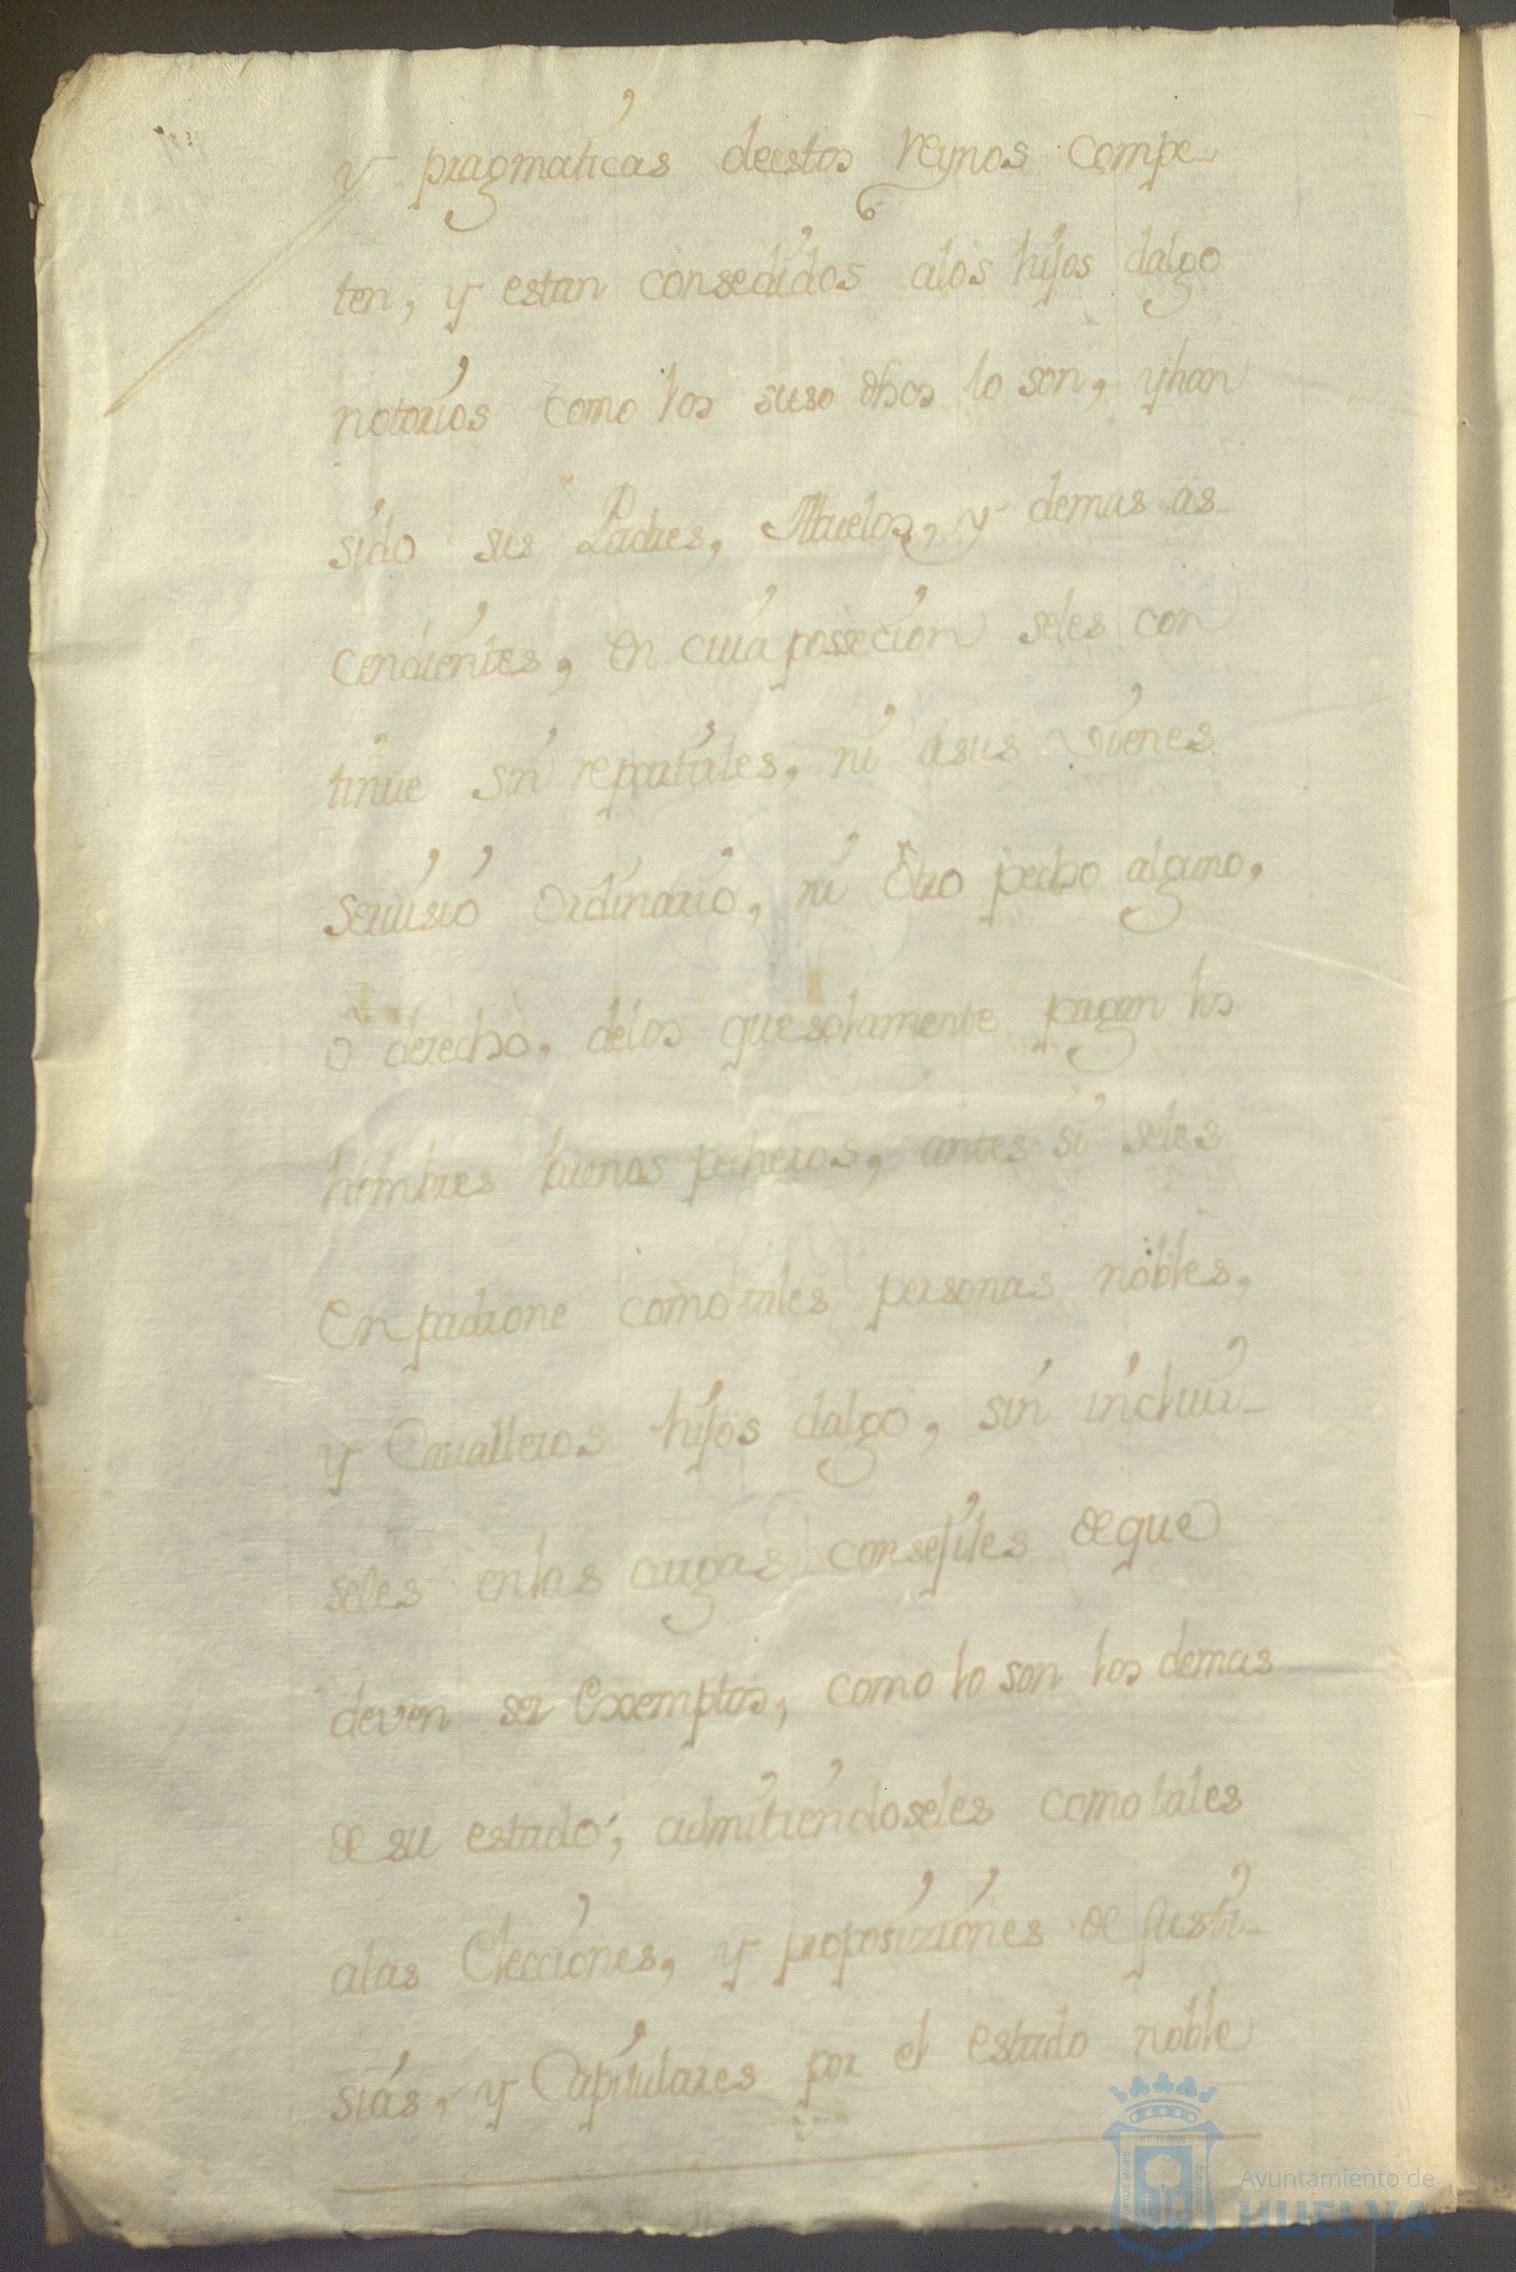 y pragmaticas deestos reynos compe-
ten, y estan consedidos alos hijos dalgo
notorios como los suso dhos lo son, yhan
sido sus Padres, Abuelos, y demas as-
cendientes, en cuia possecion seles con
tinue sin repartirles, ni asus vienes
seruisio ordinario, ni otro pecho alguno,
o derecho, delos quesolamente pagan los
hombres buenos pecheros, antes si seles
enpadrone comotales personas nobles,
y Caualleros hijos dalgo, sin incluir-
seles enlas cargas consejiles deque
deven ser exxemptos, como lo son los demas
de su estado, admitiendoseles como tales
alas Elecciones, y proposiziones de Justi-
sias, y Capitulares por el estado noble
Ayuntamiento de
HUELVA